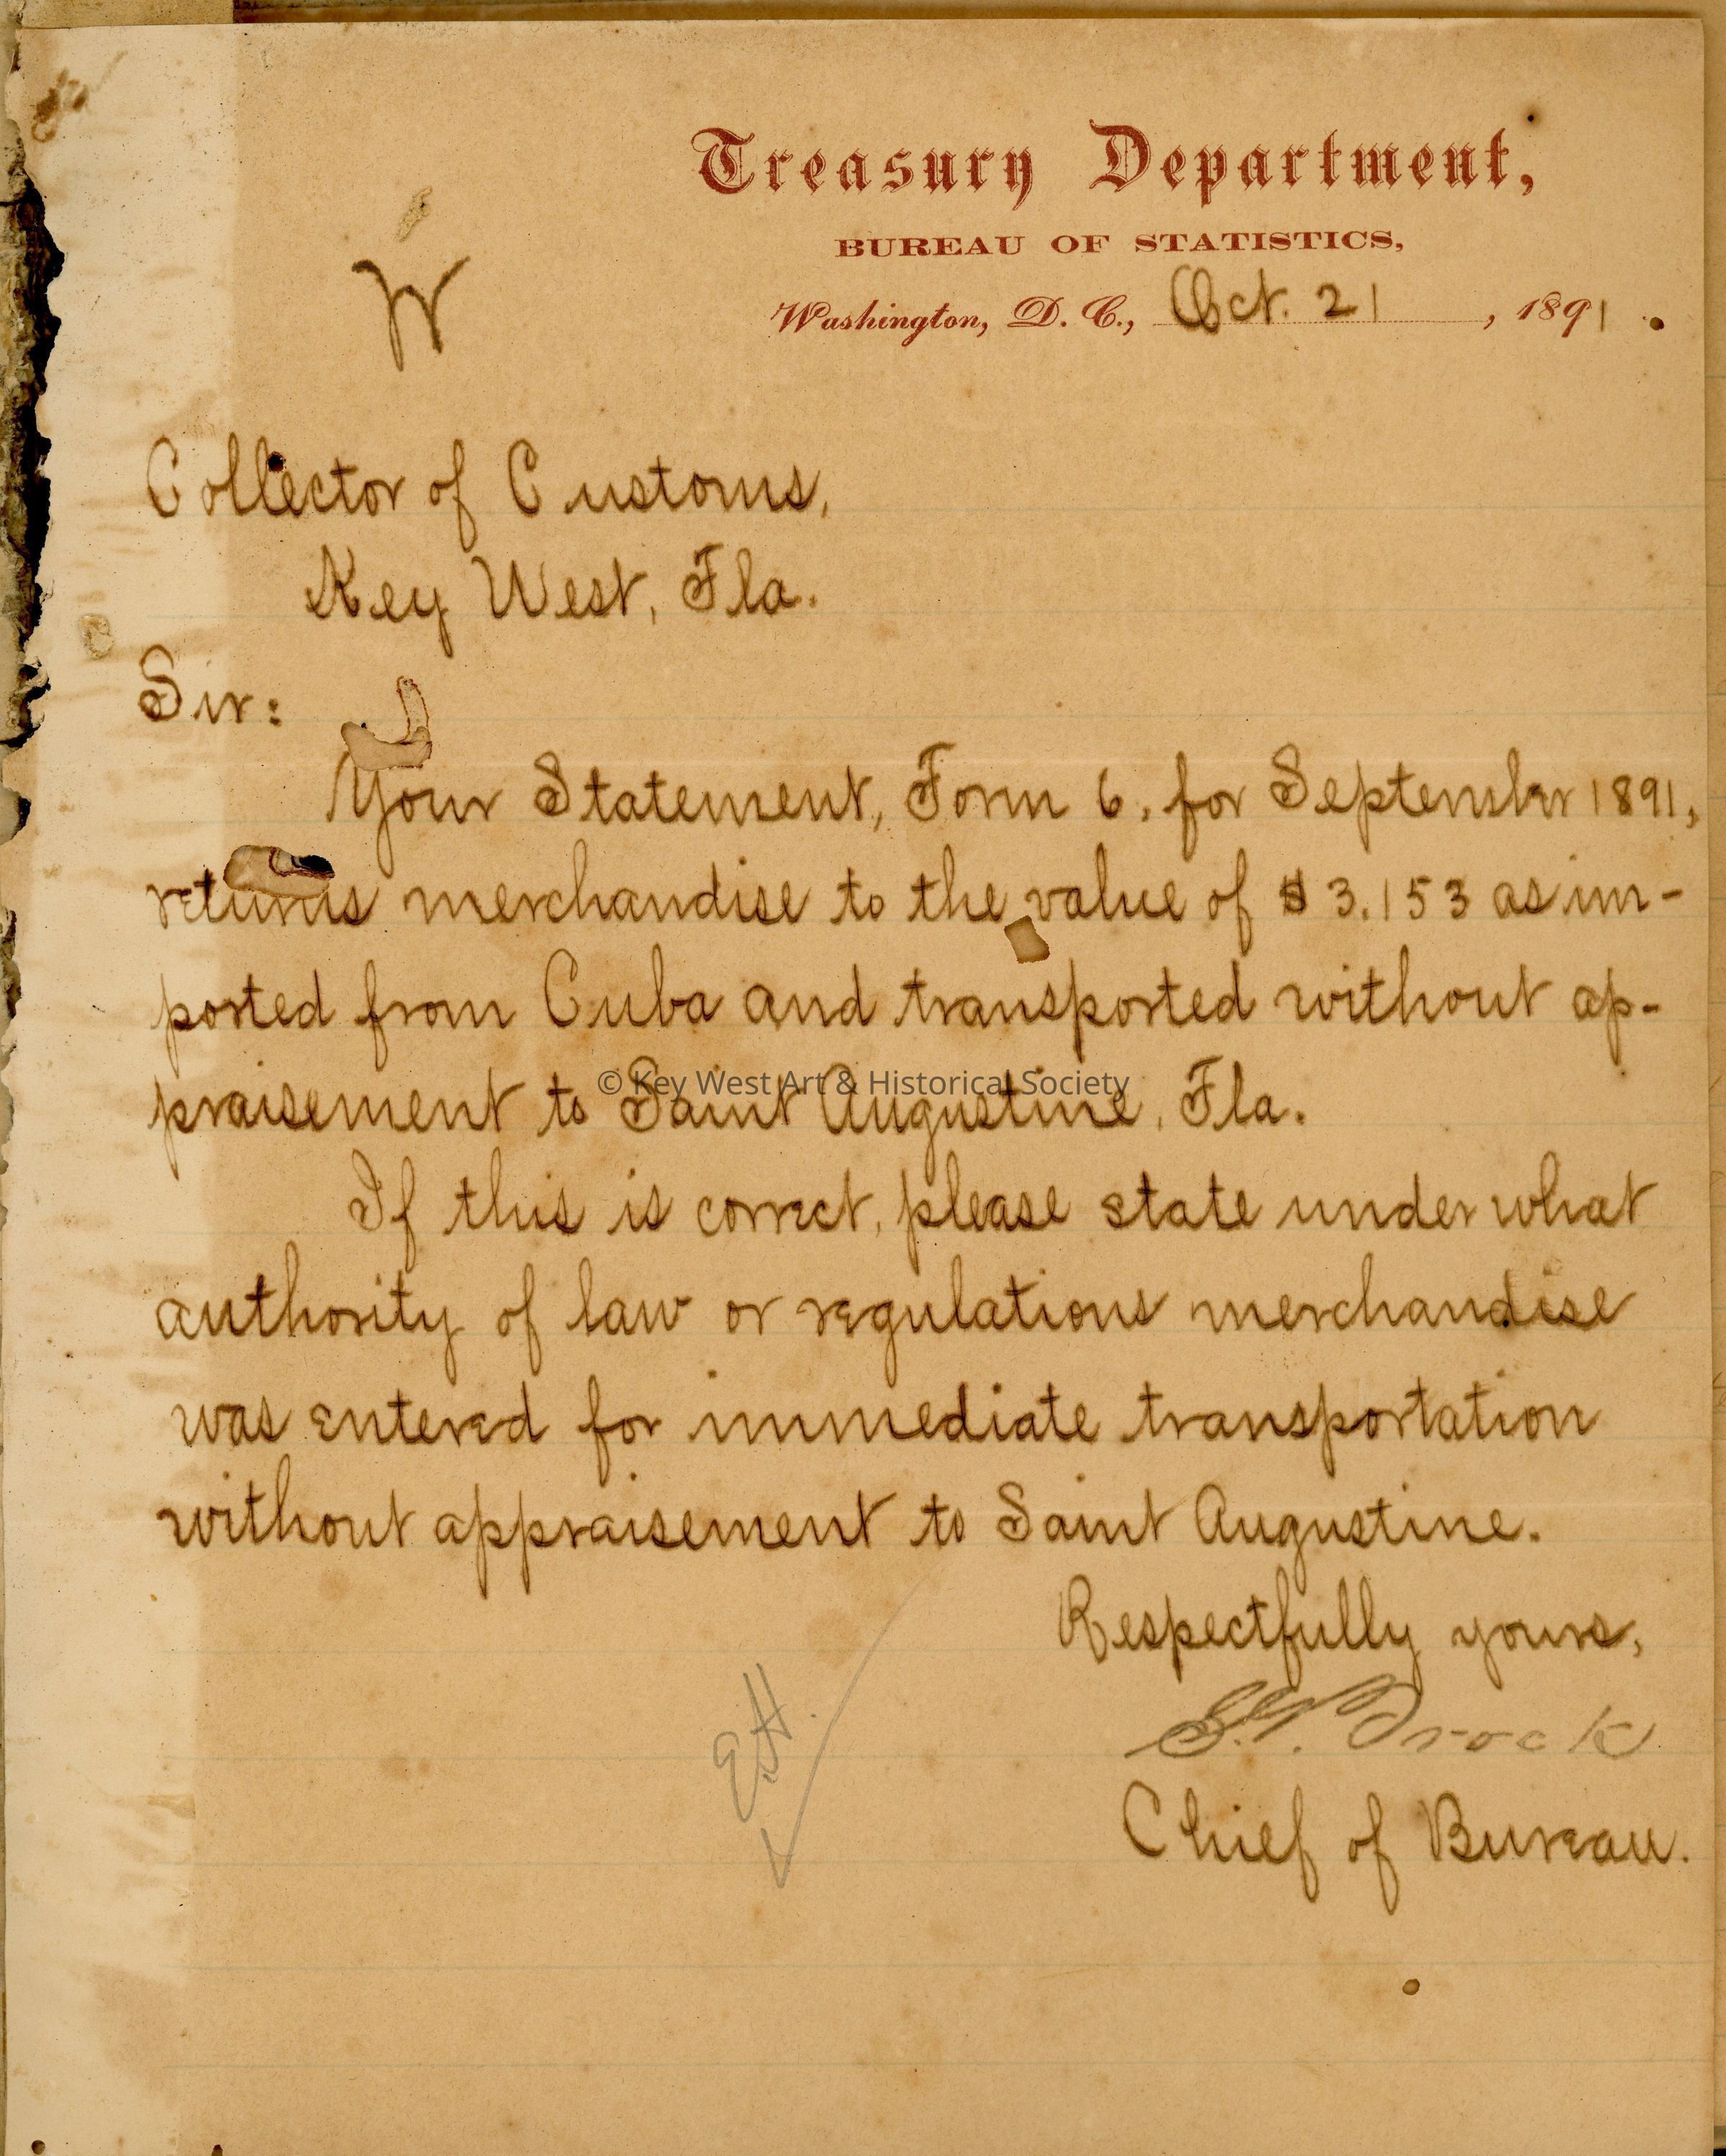 Treasury Department,
BUREAU OF STATISTICS,
Washington, D. C., Oct. 21, 1891.
W
Collector of Customs,
Key West, Fla.
Sir:
Your Statement, Form 6, for September 1891,
returns merchandise to the value of $3.153 as im-
ported from Cuba and transported without ap-
praisement to Saint Augustine, Fla.
© Key West Art & Historical Society
If this is correct, please state under what
authority of law or regulations merchandise
was entered for immediate transportation
without appraisement to Saint Augustine.
Respectfully yours,
S. G. Brock
Chief of Bureau.
E.H.